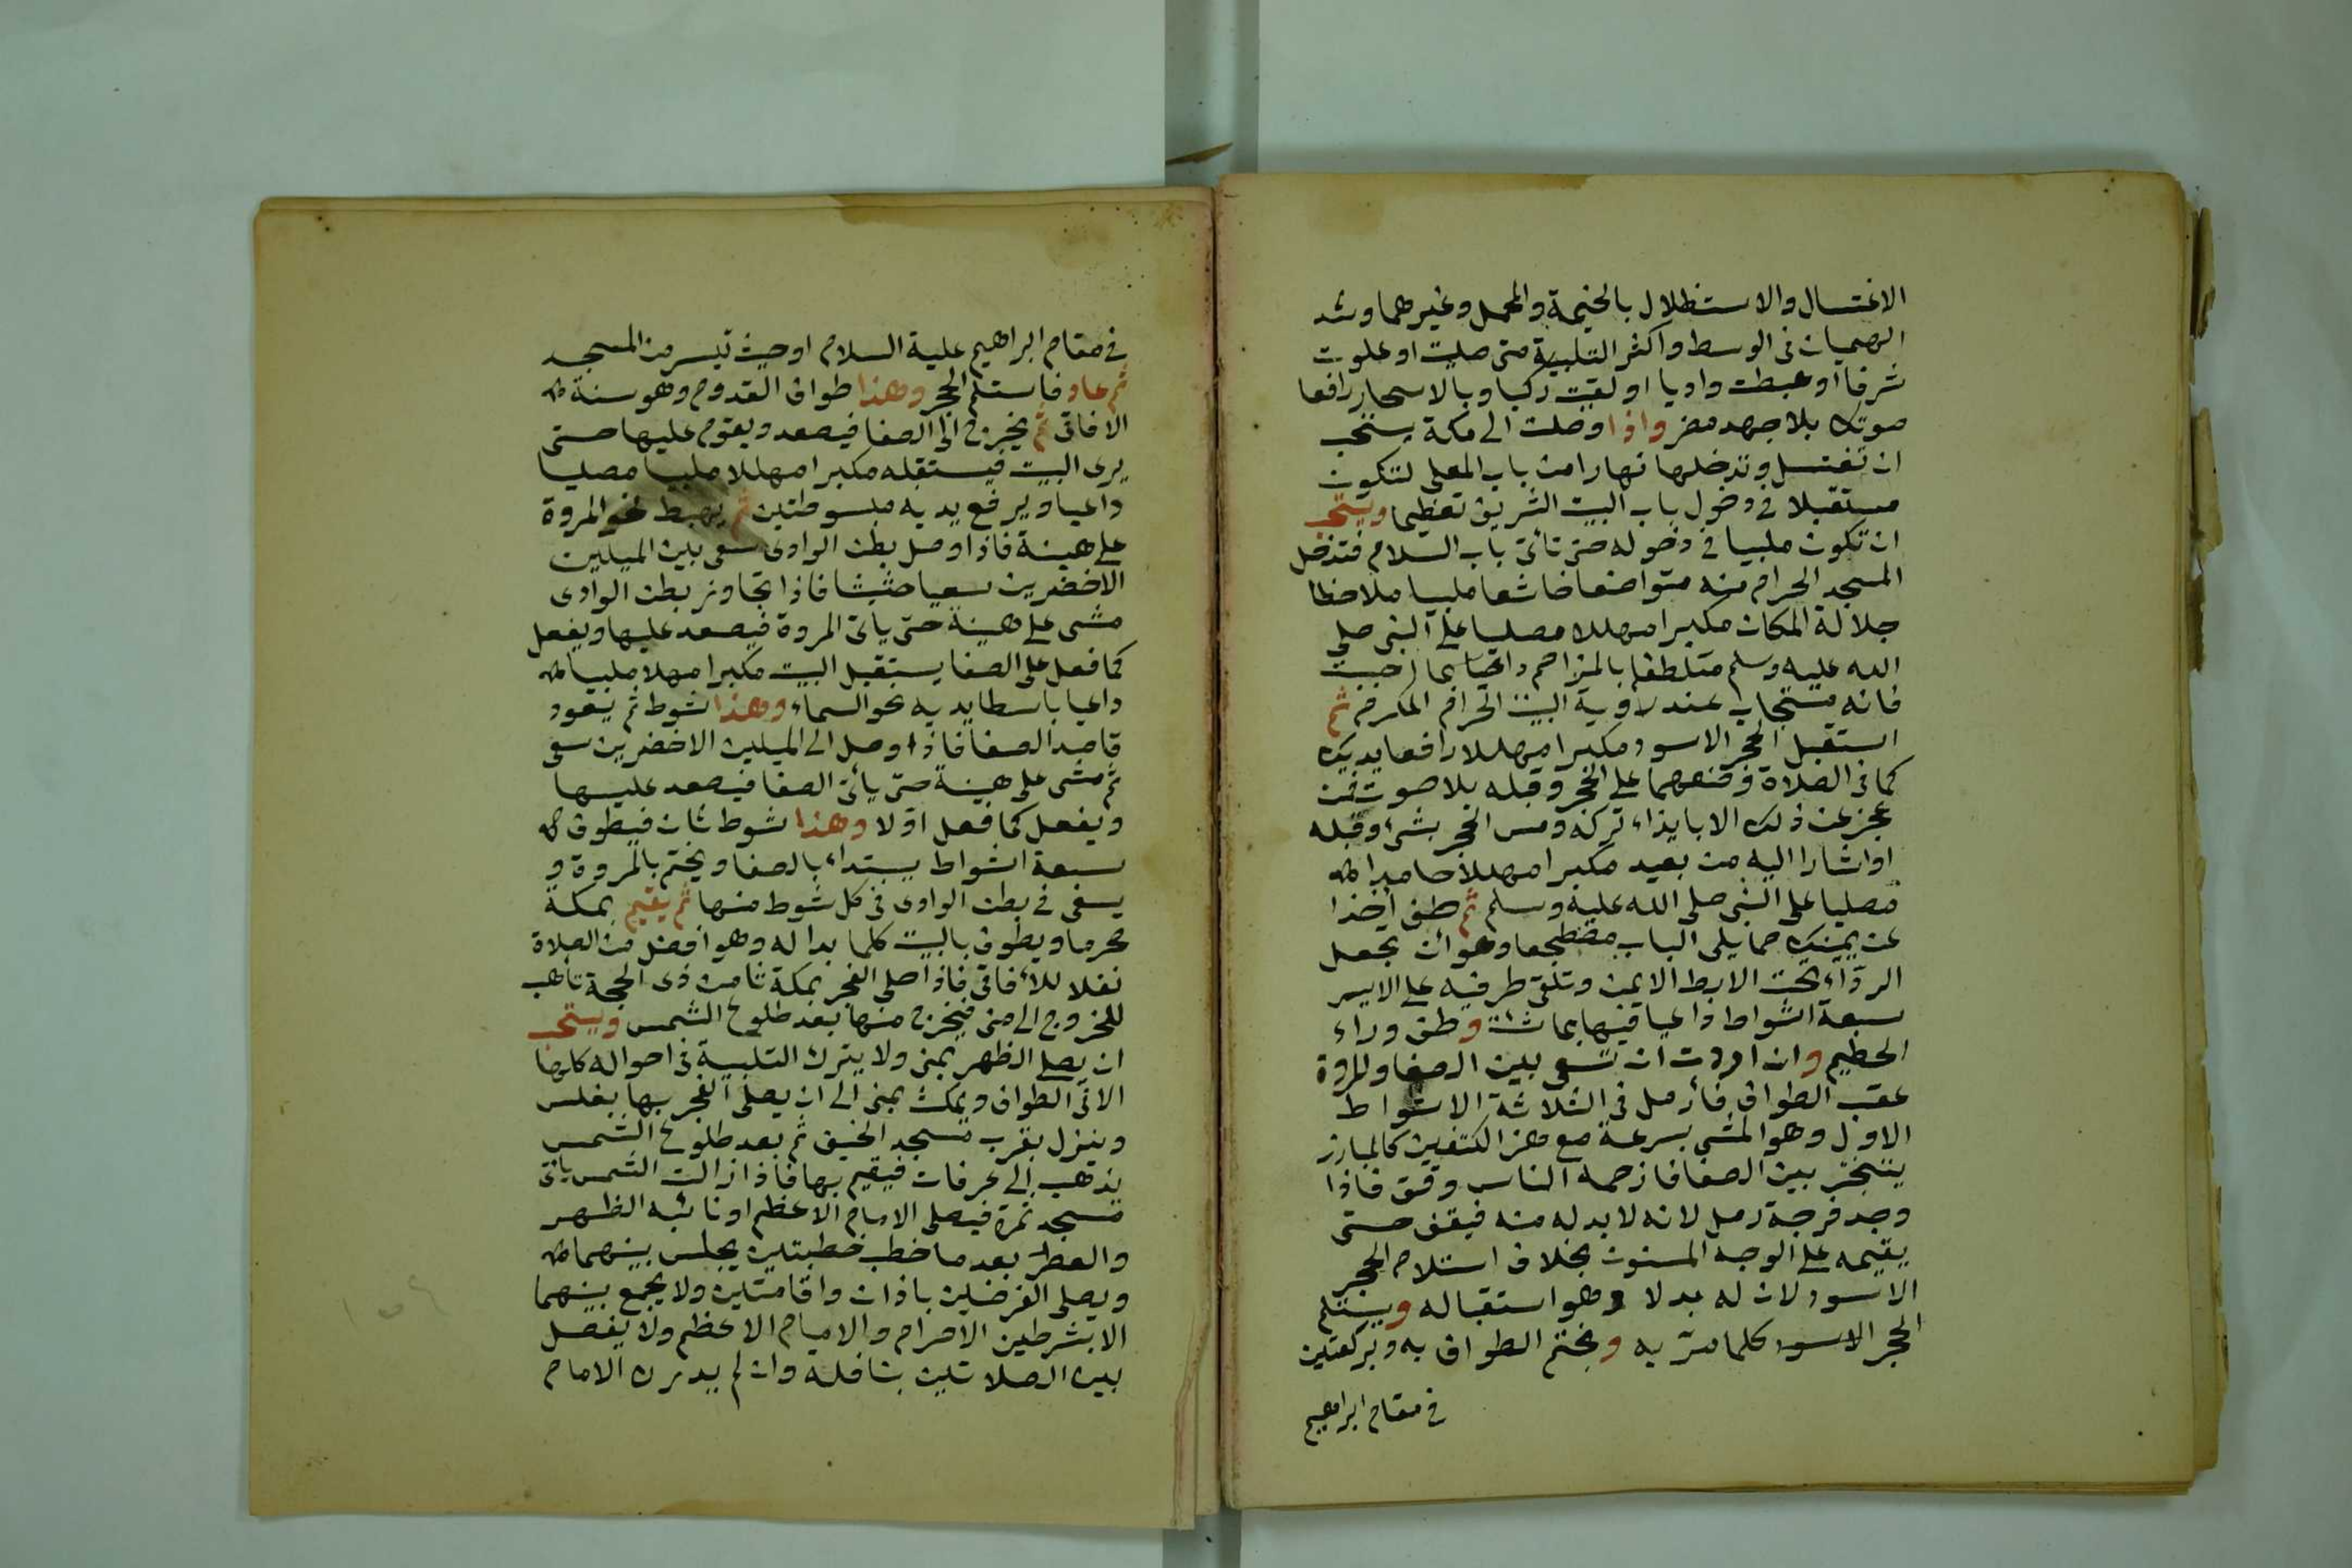 الاغتسال والاستظلال بالخيمة والمحمل وغيرهما وشد
الهميان فى الوسط واكثر التلبية متى صليت او علوت
شرفا او هبطت واديا او لقيت ركبا وبالاسحار رافعا
صوتك بلا جهد مضر واذا وصلت الى مكة يستحب
ان تغتسل وتدخلها نهارا من باب المعلى لتكون
مستقبلا فى دخول باب البيت الشريف تعظيما ويستحب
ان تكون ملبيا فى دخوله حتى تأتى باب السلام فتدخل
المسجد الحرام منه متواضعا خاشعا ملبيا ملاحظا
جلالة المكان مكبرا مهللا مصليا على النبى صلى
الله عليه وسلم متلطفا بالمزاحم داعيا بما احببت
فانه مستجاب عند رؤية البيت الحرام المكرم ثم
استقبل الحجر الاسود مكبرا مهللا رافعا يديك
كما فى الصلاة وضعهما على الحجر وقبله بلا صوت فمن
عجز عن ذلك الا بايذاء تركه ومس الحجر بشئ وقبله
او اشار اليه من بعيد مكبرا مهللا حامدا
مصليا على النبى صلى الله عليه وسلم ثم طف آخذا
عن يمينك مما يلى الباب مضطجعا وهو ان يجعل
الردآء تحت الابط الايمن وتلقى طرفيه على الايسر
سبعة اشواط داعيا فيها بما شئت وطف وراء
الحطيم وان اردت ان تسعى بين الصفا والمروة
عقب الطواف فأرمل فى الثلاثة الاشواط
الاول وهو المشى بسرعة مع هز الكتفين كالمبارز
يتبختر بين الصفا فان زحمه الناس وقف فاذا
وجد فرجة رمل لانه لا بد له منه فيقف حتى
يقيمه على الوجه المسنون بخلاف استلام الحجر
الاسود لان له بدلا وهو استقباله ويستلم
الحجر الاسود كلما مر به ويختم الطواف به وبركعتين
فى مقام ابراهيم
فى مقام ابراهيم عليه السلام او حيث تيسر من المسجد
ثم عاد فاستلم الحجر وهذا طواف القدوم وهو سنة
الافاقى ثم يخرج الى الصفا فيصعد ويقوم عليها حتى
يرى البيت فيستقبله مكبرا مهللا ملبيا مصليا
داعيا ويرفع يديه مبسوطتين ثم يهبط نحو المروة
على هينة فاذا وصل بطن الوادى سعى بين الميلين
الاخضرين سعيا حثيثا فاذا تجاوز بطن الوادى
مشى على هينة حتى يأتى المروة فيصعد عليها ويفعل
كما فعل على الصفا يستقبل البيت مكبرا مهللا ملبيا
داعيا باسطا يديه نحو السماء وهذا شوط ثم يعود
قاصدا الصفا فاذا وصل الى الميلين الاخضرين سعى
ثم مشى على هينة حتى يأتى الصفا فيصعد عليها
ويفعل كما فعل اولا وهذا شوط ثان فيطوف
سبعة اشواط يبتداء بالصفا ويختم بالمروة و
يسعى فى بطن الوادى فى كل شوط منها ثم يقيم بمكة
محرما ويطوف بالبيت كلما بدا له وهو افضل من الصلاة
نفلا للأفاقى فاذا صلى الفجر بمكة ثامن ذى الحجة تاهب
للخروج الى منى فيخرج منها بعد طلوع الشمس ويستحب
ان يصلى الظهر بمنى ولا يترك التلبية فى احواله كلها
الا فى الطواف ويمكث بمنى الى ان يصلى الفجر بها بغلس
وينزل بقرب مسجد الخيف ثم بعد طلوع الشمس
يذهب الى عرفات فيقيم بها فاذا زالت الشمس يأتى
مسجد نمرة فيصلى الامام الاعظم او نائبه الظهر
والعصر بعد ما خطب خطبتين يجلس بينهما
ويصلى الفرضين باذان واقامتين ولا يجمع بينهما
الا بشرطين الاحرام والامام الاعظم ولا يفصل
بين الصلاتين بنافلة وان لم يدرك الامام